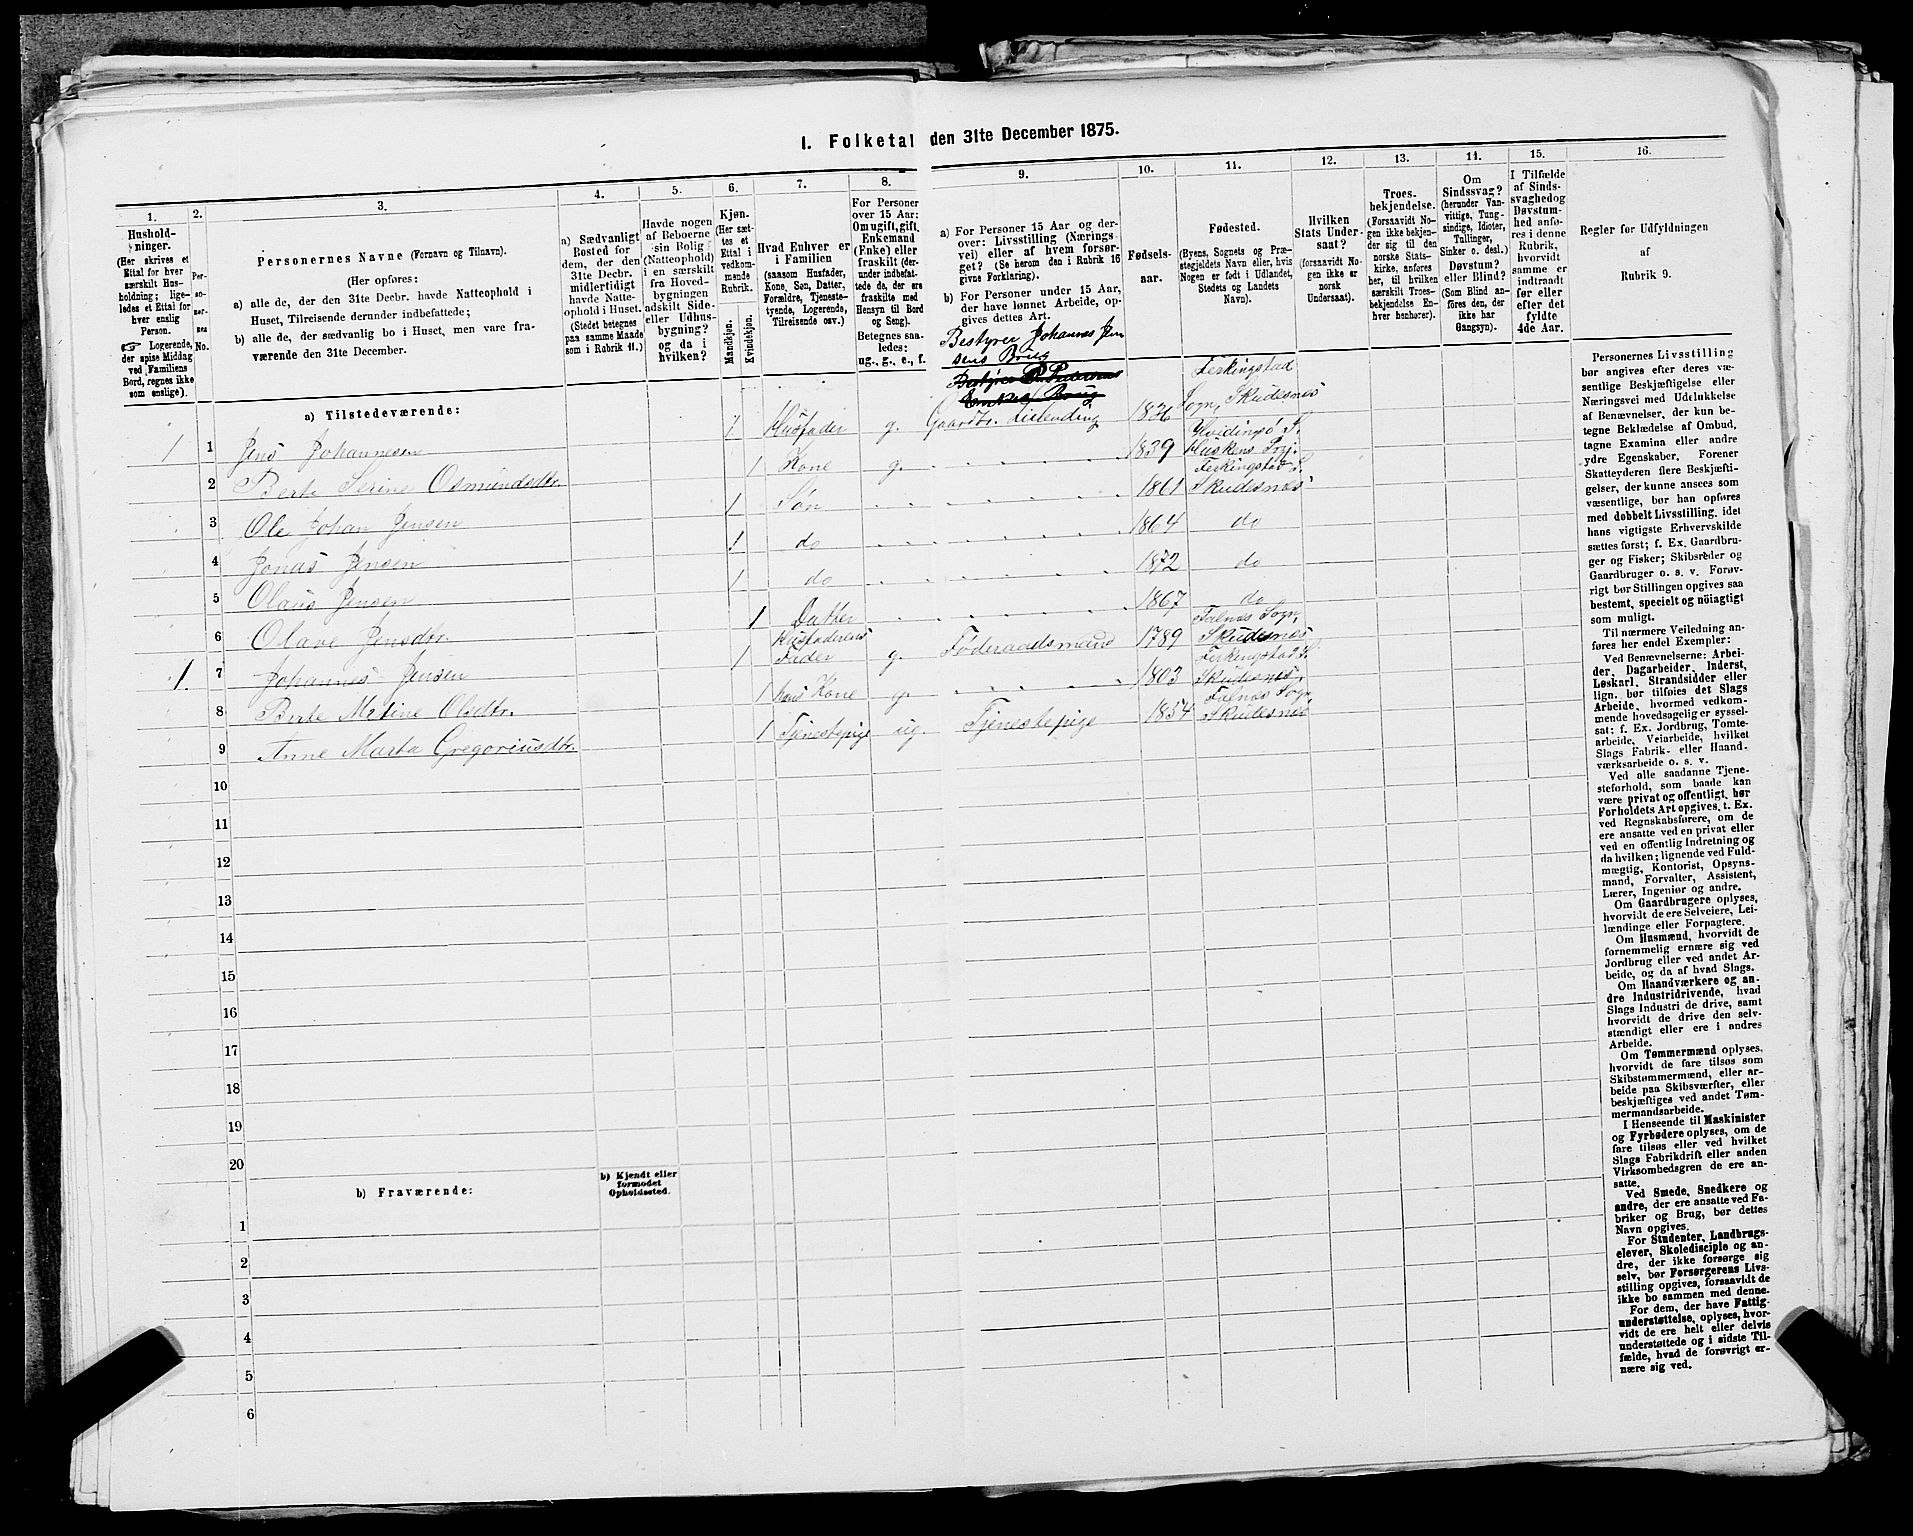 I. Folketal den 31te December 1875.
1. 2. 3. 4. 5. 6. 7. 8. 9. 10. 11. 12. 13. 14. 15. 16.
Hushold-
ninger.
(Her skrives et
Ettal for hver
særskilt Hus-
holdning; lige-
ledes et Ettal for
hver enslig
Person.
☞ Logerende,
der spise Middag
ved Familiens
Bord, regnes ikke
som enslige).
Per-
so-
ner-
nes
No.
Personernes Navne (Fornavn og Tilnavn).
(Her opføres:
a) alle de, der den 31te Decbr. havde Natteophold i
Huset, Tilreisende derunder indbefattede;
b) alle de, der sædvanlig bo i Huset, men vare fra-
værende den 31te December.
a) Sædvanligt
Bosted for
dem, der den
31te Decbr.
midlertidigt
havde Natte-
ophold i Huset.
(Stedet betegnes
paa samme Maade
som i Rubrik 11.)
Havde nogen
af Beboerne
sin Bolig
(Natteophold)
i en særskilt
fra Hoved-
bygningen
adskilt Side-
eller Udhus-
bygning?
og da i
hvilken?
Kjøn.
(Her sæt-
tes et
Ettal i
vedkom-
mende
Rubrik.
Mandkjøn.
Kvindekjøn.
Hvad Enhver er
i Familien
(saasom Husfader,
Kone, Søn, Datter,
Forældre, Tjeneste-
tyende, Logerende,
Tilreisende osv.)
For Personer
over 15 Aar:
Om ugift, gift,
Enkemand
(Enke) eller
fraskilt (der-
under indbefat-
tede de, der ere
fraskilte med
Hensyn til Bord
og Seng).
Betegnes saa-
ledes:
ug., g., e., f.
a) For Personer 15 Aar og der-
over: Livsstilling (Nærings-
vei) eller af hvem forsør-
get? (Se herom den i Rubrik 16
givne Forklaring).
b) For Personer under 15 Aar,
der have lønnet Arbeide, op-
gives dettes Art.
Bestyrer Johannes Jen
sens Brug
Bestyrer P. Pedersens
Enkes Brug
Fødsels-
aar.
Fødested.
(Byens, Sognets og Præ-
stegjeldets Navn eller, hvis
Nogen er født i Udlandet,
Stedets og Landets
Navn).
Hvilken
Stats Under-
saat?
(forsaavidt No-
gen ikke er
norsk
Undersaat).
Troes-
bekjendelse.
(Forsaavidt No-
gen ikke bekjen-
der sig til den
norske Stats-
kirke, anføres
her, til hvilken
særskilt Troes-
bekjendelse En-
hver henhører).
Om
Sindssvag?
(herunder Van-
vittige, Tung-
sindige, Idioter,
Tullinger,
Sinker o. desl.)
Døvstum?
eller Blind?
(Som Blind an-
føres den, der
ikke har
Gangsyn).
I Tilfælde
af Sinds-
svaghed og
Døvstum-
hed anfø-
res i denne
Rubrik,
hvorvidt
samme er
indtraadt
før eller
efter det
fyldte
4de Aar.
Regler for Udfyldningen
af
Rubrik 9.
a) Tilstedeværende:
1 1 Jens Johannesen 1 Husfader g. Gaardbr. Leilending 1836 Ferkingstad Sogn, Skudesnæs
2 Berte Serine Osmundsdtr. 1 Kone g. 1839 Hvidingsø S.
3 Ole Johan Jensen 1 Søn 1861 Ferkingstad S. Skudesnæs
4 Jonas Jensen 1 do 1864 do
5 Olaus Jensen 1 do 1872 do
6 Olave Jensdtr. 1 Datter 1867 do
1 7 Johannes Jensen 1 Husfaderens Fader g. Føderaadsmand 1789 Falnæs Sogn, Skudesnæs
8 Berte Martine Olsdtr. 1 hans Kone g. 1803 Ferkingstad S. Skudesnæs
9 Anne Marta Gregoriusdtr. 1 Tjenestepige ug. Tjenestepige 1854 Falnæs Sogn, Skudesnæs
10
11
12
13
14
15
16
17
18
19
20
b) Fraværende:
b) Kjendt eller
formodet
Opholdssted.
1
2
3
4
5
6
Personernes Livsstilling
bør angives efter deres væ-
sentlige Beskjæftigelse eller
Næringsvei med Udelukkelse
af Benævnelser, der kun be-
tegne Beklædelse af Ombud,
tagne Examina eller andre
ydre Egenskaber. Forener
Skatteyderen flere Beskjæfti-
gelser, der kunne ansees som
væsentlige, bør han opføres
med dobbelt Livsstilling, idet
hans vigtigste Erhvervskilde
sættes først; f. Ex. Gaardbru-
ger og Fisker; Skibsreder og
Gaardbruger o. s. v. Forøv-
rigt bør Stillingen opgives saa
bestemt, specielt og nöiagtigt
som muligt.
Til nærmere Veiledning an-
føres her endel Exempler:
Ved Benævnelserne: Arbei-
der, Dagarbeider, Inderst,
Løskarl, Strandsidder eller
lign. bør tilføies det Slags
Arbeide, hvormed vedkom-
mende hovedsagelig er syssel-
sat; f. Ex. Jordbrug, Tomte-
arbeide, Veiarbeide, hvilket
Slags Fabrik- eller Haand-
værksarbeide o. s. v.
Ved alle saadanne Tjene-
steforhold, som baade kan
være privat og offentligt, bør
Forholdets Art opgives, t. Ex.
ved Regnskabsførere, om de
ere ansatte ved en privat eller
ved en offentlig Indretning og
da hvilken; lignende ved Fuld-
mægtig, Kontorist, Opsyns-
mand, Forvalter, Assistent,
Lærer, Ingeniør og andre.
Om Gaardbrugere oplyses,
hvorvidt de ere Selveiere, Lei-
lændinge eller Forpagtere.
Om Husmænd, hvorvidt de
fornemmelig ernære sig ved
Jordbrug eller ved andet Ar-
beide, og da af hvad Slags.
Om Haandværkere og an-
dre Industridrivende, hvad
Slags Industri de drive, samt
hvorvidt de drive den selv-
stændigt eller ere i andres
Arbeide.
Om Tømmermænd oplyses,
hvorvidt de fare tilsøs som
Skibstømmermænd, eller ar-
beide paa Skibsværfter, eller
beskjæftiges ved andet Tøm-
mermandsarbeide.
I Henseende til Maskinister
og Fyrbødere oplyses, om de
fare tilsøs eller ved hvilket
Slags Fabrikdrift eller anden
Virksomhedsgren de ere an-
satte.
Ved Smede, Snedkere og
andre, der ere ansatte ved Fa-
briker og Brug, bør dettes
Navn opgives.
For Studenter, Landbrugs-
elever, Skoledisciple og an-
dre, der ikke forsørge sig
selv, bør Forsørgerens Livs-
stilling opgives, forsaavidt de
ikke bo sammen med denne.
For dem, der have Fattig-
understøttelse, oplyses, hvor-
vidt de ere helt eller delvis
understøttede og i sidste Til-
fælde, hvad de forøvrigt er-
nære sig ved.